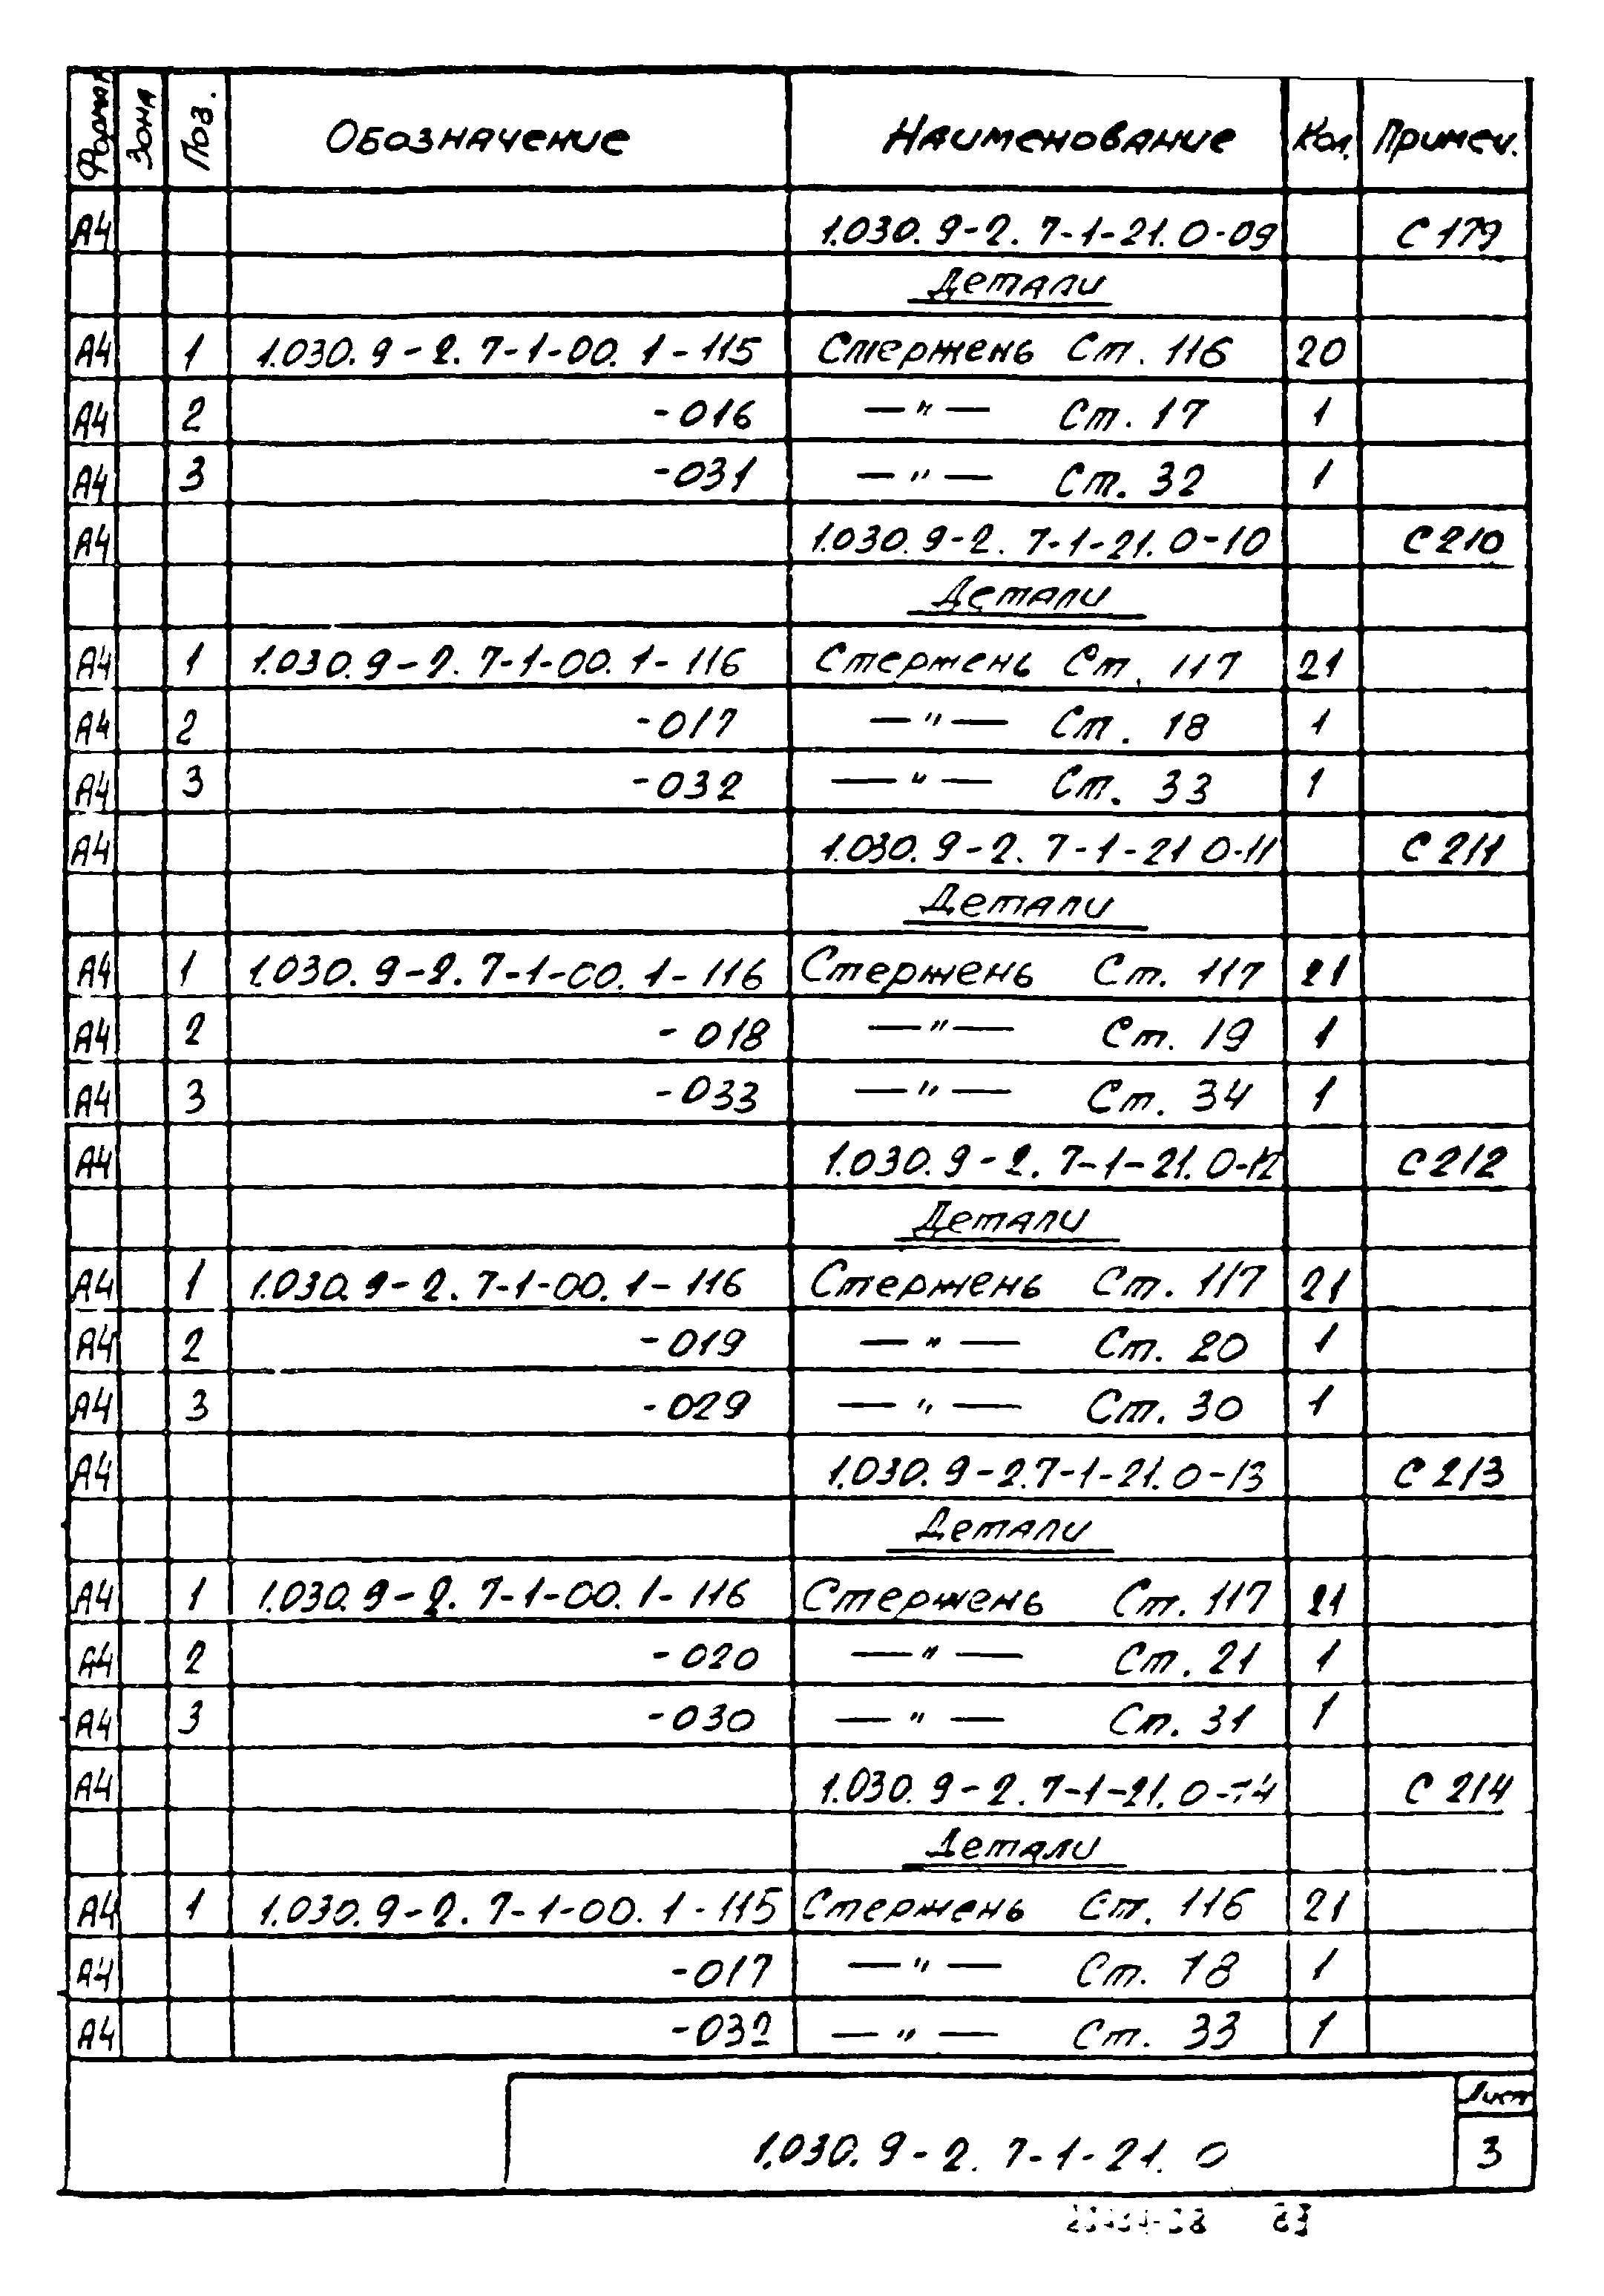 Формат Зона Поз. Обозначение Наименование Кол. Примеч.
А4 1.030.9-2.7-1-21.0-09 С179
Детали
А4 1 1.030.9-2.7-1-00.1-115 Стержень Ст.116 20
А4 2 -016 —"— Ст.17 1
А4 3 -031 —"— Ст.32 1
А4 1.030.9-2.7-1-21.0-10 С210
Детали
А4 1 1.030.9-2.7-1-00.1-116 Стержень Ст.117 21
А4 2 -017 —"— Ст.18 1
А4 3 -032 —"— Ст.33 1
А4 1.030.9-2.7-1-21 0-11 С211
Детали
А4 1 1.030.9-2.7-1-00.1-116 Стержень Ст.117 21
А4 2 -018 —"— Ст.19 1
А4 3 -033 —"— Ст.34 1
А4 1.030.9-2.7-1-21.0-12 С212
Детали
А4 1 1.030.9-2.7-1-00.1-116 Стержень Ст.117 21
А4 2 -019 —"— Ст.20 1
А4 3 -029 —"— Ст.30 1
А4 1.030.9-2.7-1-21.0-13 С213
Детали
А4 1 1.030.9-2.7-1-00.1-116 Стержень Ст.117 21
А4 2 -020 —"— Ст.21 1
А4 3 -030 —"— Ст.31 1
А4 1.030.9-2.7-1-21.0-14 С214
Детали
А4 1 1.030.9-2.7-1-00.1-115 Стержень Ст.116 21
А4 -017 —"— Ст.18 1
А4 -032 —"— Ст.33 1
Лист
1.030.9-2.7-1-21.0 3